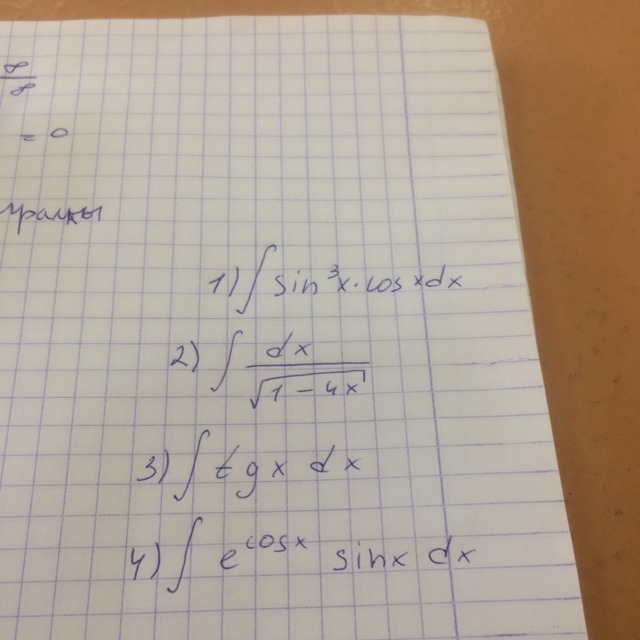 ∞/∞
= 0
1) ∫ sin³x · cos x dx
2) ∫ dx / √(1 – 4x)
3) ∫ tg x dx
4) ∫ e^(cosx) sinx dx